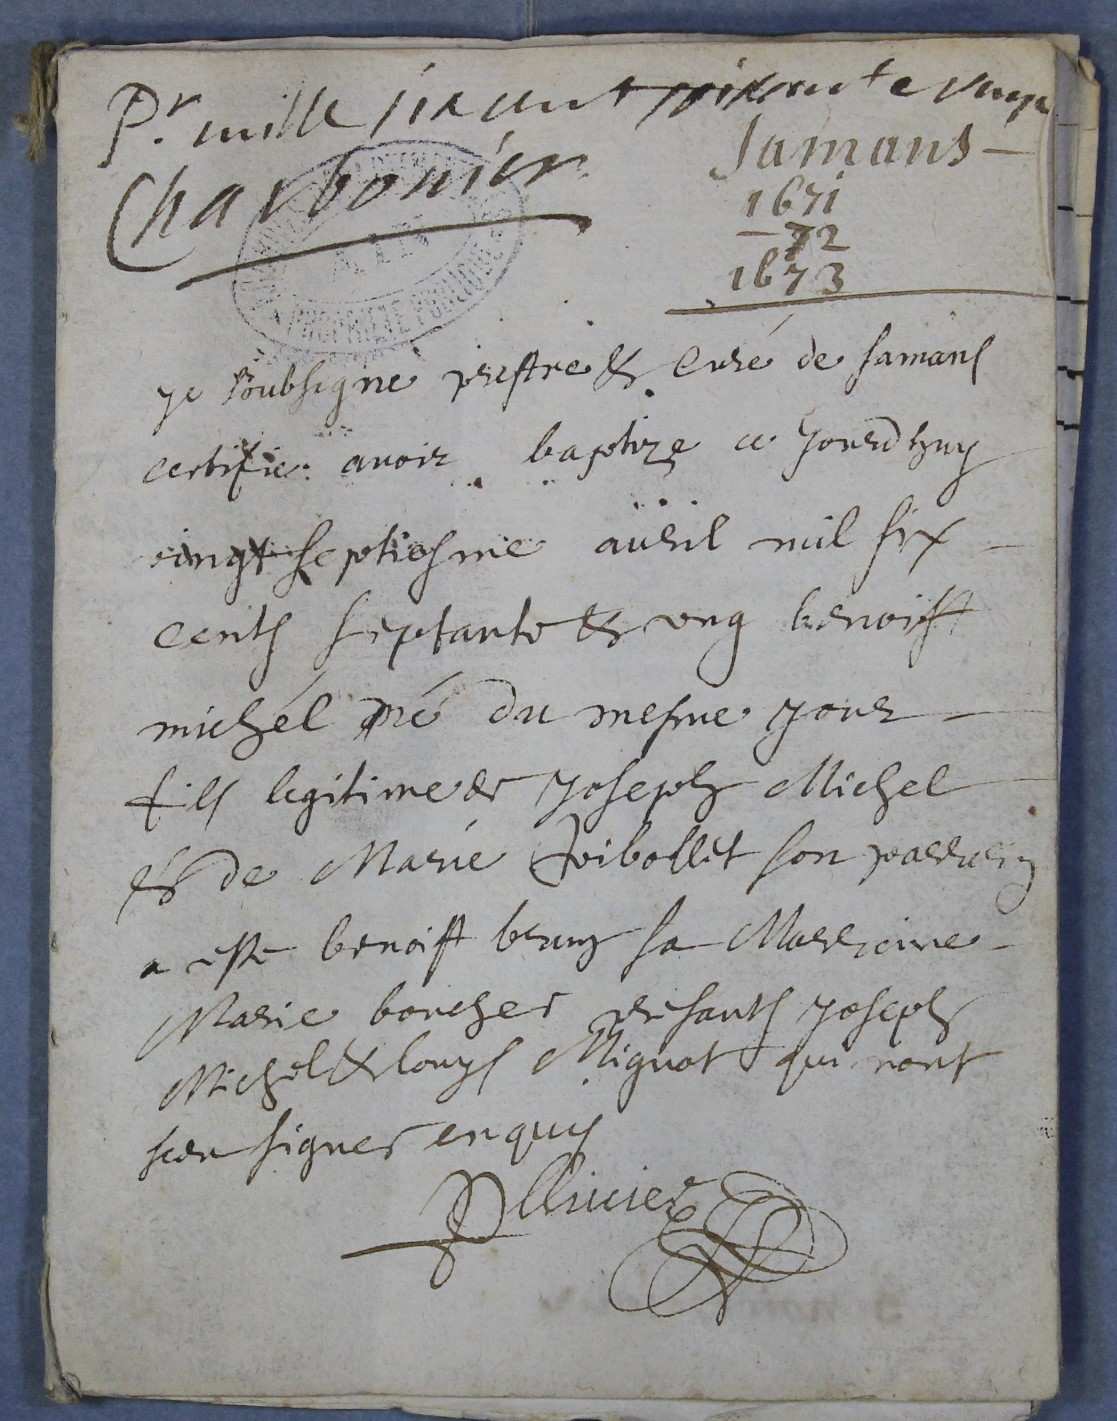 Pr. mille six cent soixante unze
Charbonier
Samans
1671
72
1673
PROPRIETE PUBLIQUE
Je soubsigne prestre & Curé de samans
certifie avoir baptize ce Jourdhuy
vingt septiesme auril mil six
cents septante & ung benoist
michel né du mesme jour
fils legitime de Joseph Michel
& de Marie Guibollet son parrein
a este benoist brun sa Marreine
Marie boucher presants Joseph
Michel & louys Mignot qui nont
sceu signer enquis
Ollivier